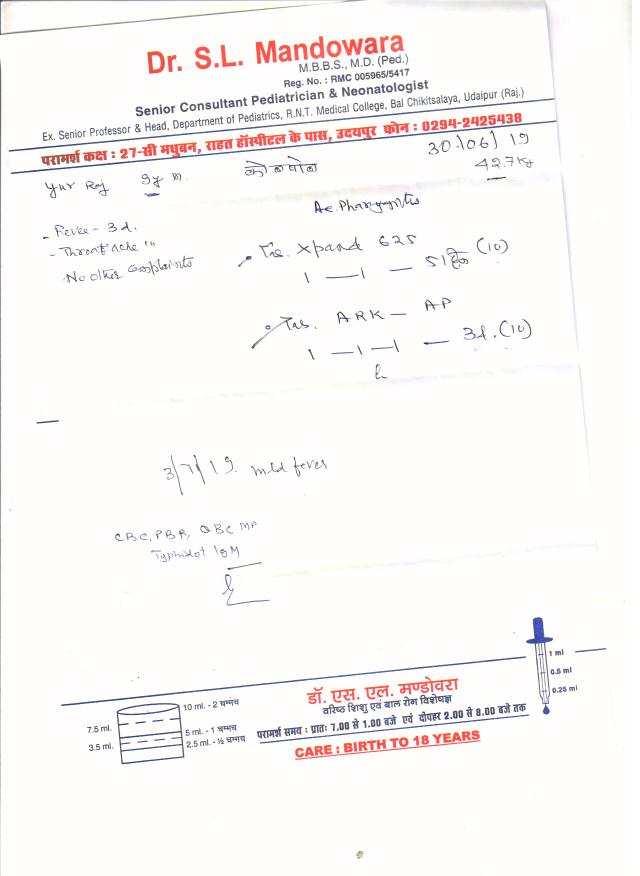 Dr. S.L. Mandowara
M.B.B.S., M.D. (Ped.)
Reg. No. : RMC 005965/5417
Senior Consultant Pediatrician & Neonatologist
Ex. Senior Professor & Head, Department of Pediatrics, R.N.T. Medical College, Bal Chikitsalaya, Udaipur (Raj.)
परामर्श कक्ष : 27-सी मधुबन, राहत हॉस्पीटल के पास, उदयपुर फोन : 0294-2425438
30/06/19
Yuv Raj 9y m.
42.7Kg
Ac. Pharyngitis
- Fever - 3d.
- Throatache "
No other Complaints
Tab. Xpand 625 (10)
1 — 1 — 5
Tab. ARK - AP
1 — 1 — 1 — 3d. (10)
3/7/19 mld fever
CBC, PBF, QBC MP
Typhidot IgM
1 ml
0.5 ml
0.25 ml
10 ml. - 2 चम्मच
7.5 ml.
5 ml. - 1 चम्मच
3.5 ml.
2.5 ml. - ½ चम्मच
डॉ. एस. एल. मण्डोवरा
वरिष्ठ शिशु एवं बाल रोग विशेषज्ञ
परामर्श समय : प्रातः 7.00 से 1.00 बजे एवं दोपहर 2.00 से 8.00 बजे तक
CARE : BIRTH TO 18 YEARS